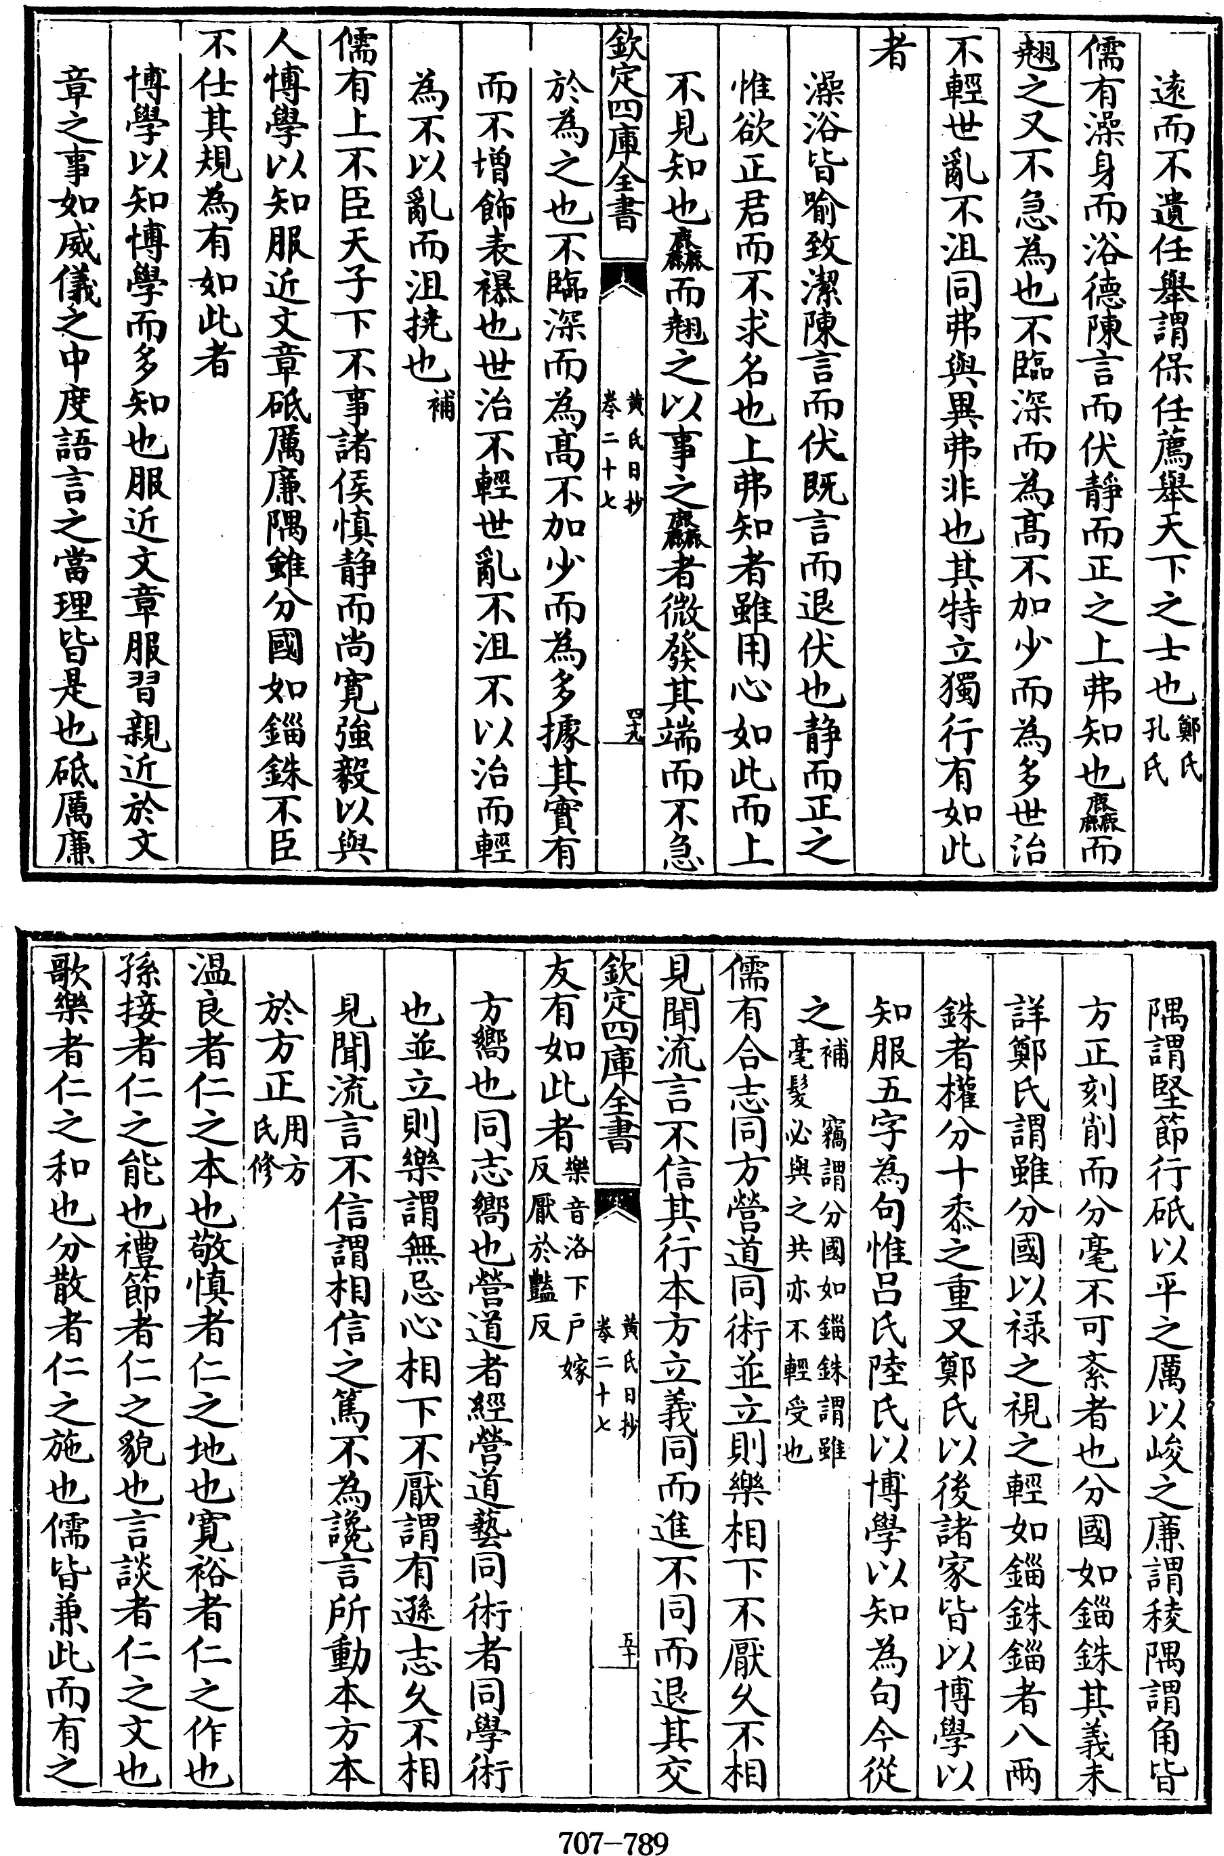 遠而不遺任舉謂保任薦舉天下之士也鄭氏孔氏
儒有澡身而浴德陳言而伏靜而正之上弗知也麤而
翹之又不急為也不臨深而為髙不加少而為多世治
不輕世亂不沮同弗與異弗非也其特立獨行有如此
者
澡浴皆喻致潔陳言而伏既言而退伏也静而正之
惟欲正君而不求名也上弗知者雖用心如此而上
不見知也麤而翹之以事之麤者微發其端而不急
欽定四庫全書
黄氏日抄
卷二十七
四九
於為之也不臨深而為髙不加少而為多據其實有
而不增飾表襮也世治不輕世亂不沮不以治而輕
為不以亂而沮撓也補
儒有上不臣天子下不事諸侯慎静而尚寛強毅以與
人博學以知服近文章砥厲廉隅雖分國如錙銖不臣
不仕其規為有如此者
博學以知博學而多知也服近文章服習親近於文
章之事如威儀之中度語言之當理皆是也砥厲廉
隅謂堅節行砥以平之厲以峻之廉謂稜隅謂角皆
方正刻削而分毫不可紊者也分國如錙銖其義未
詳鄭氏謂雖分國以禄之視之輕如錙銖錙者八兩
銖者權分十黍之重又鄭氏以後諸家皆以博學以
知服五字為句惟呂氏陸氏以博學以知為句今從
之補　竊謂分國如錙銖謂雖毫髮必與之共亦不輕受也
儒有合志同方營道同術並立則樂相下不厭久不相
見聞流言不信其行本方立義同而進不同而退其交
欽定四庫全書
黄氏日抄
卷二十七
五十
友有如此者樂音洛下戸嫁反厭於豔反
方嚮也同志嚮也營道者經營道藝同術者同學術
也並立則樂謂無忌心相下不厭謂有遜志久不相
見聞流言不信謂相信之篤不為讒言所動本方本
於方正用方氏修
温良者仁之本也敬慎者仁之地也寛裕者仁之作也
孫接者仁之能也禮節者仁之貌也言談者仁之文也
歌樂者仁之和也分散者仁之施也儒皆兼此而有之
707-789